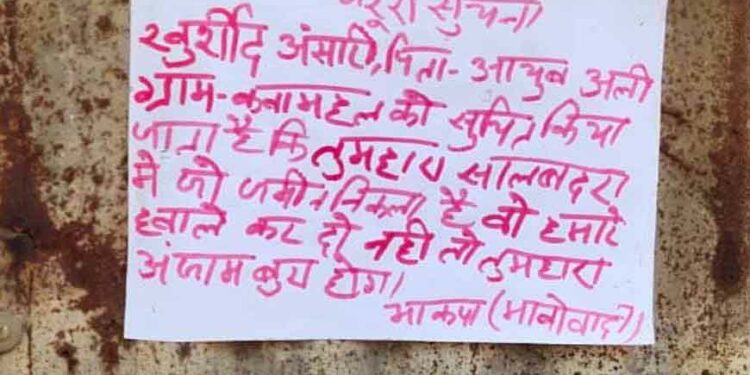 जरूरी सुचना
खुर्शीद अंसारी, पिता - आयुब अली
ग्राम - कवामहल को सुचित किया
जाता है कि तुमहारा सालबदरा
मे जो जमीन निकला है वो हमारे
हवाले कर दो नही तो तुमहारा
अंजाम बुरा होगा।
भाकपा (माओवादी)